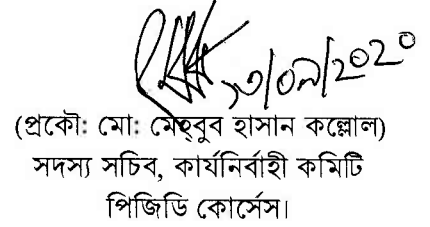 ১৩/০৯/২০২০
(প্রকৌ: মো: মেহ্বুব হাসান কল্লোল)
সদস্য সচিব, কার্যনির্বাহী কমিটি
পিজিডি কোর্সেস।